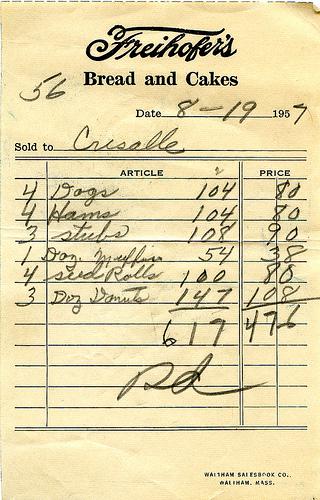 Freihofer's
Bread and Cakes
56
Date 8-19 1957
Sold to Crisalle
ARTICLE PRICE
4 Dogs 104 80
4 Hams 104 80
3 stubs 108 90
1 Doz. Muffins 54 38
4 seed Rolls 100 80
3 Doz Donuts 147 108
617 476
Pd
WALTHAM SALESBOOK CO.,
WALTHAM, MASS.